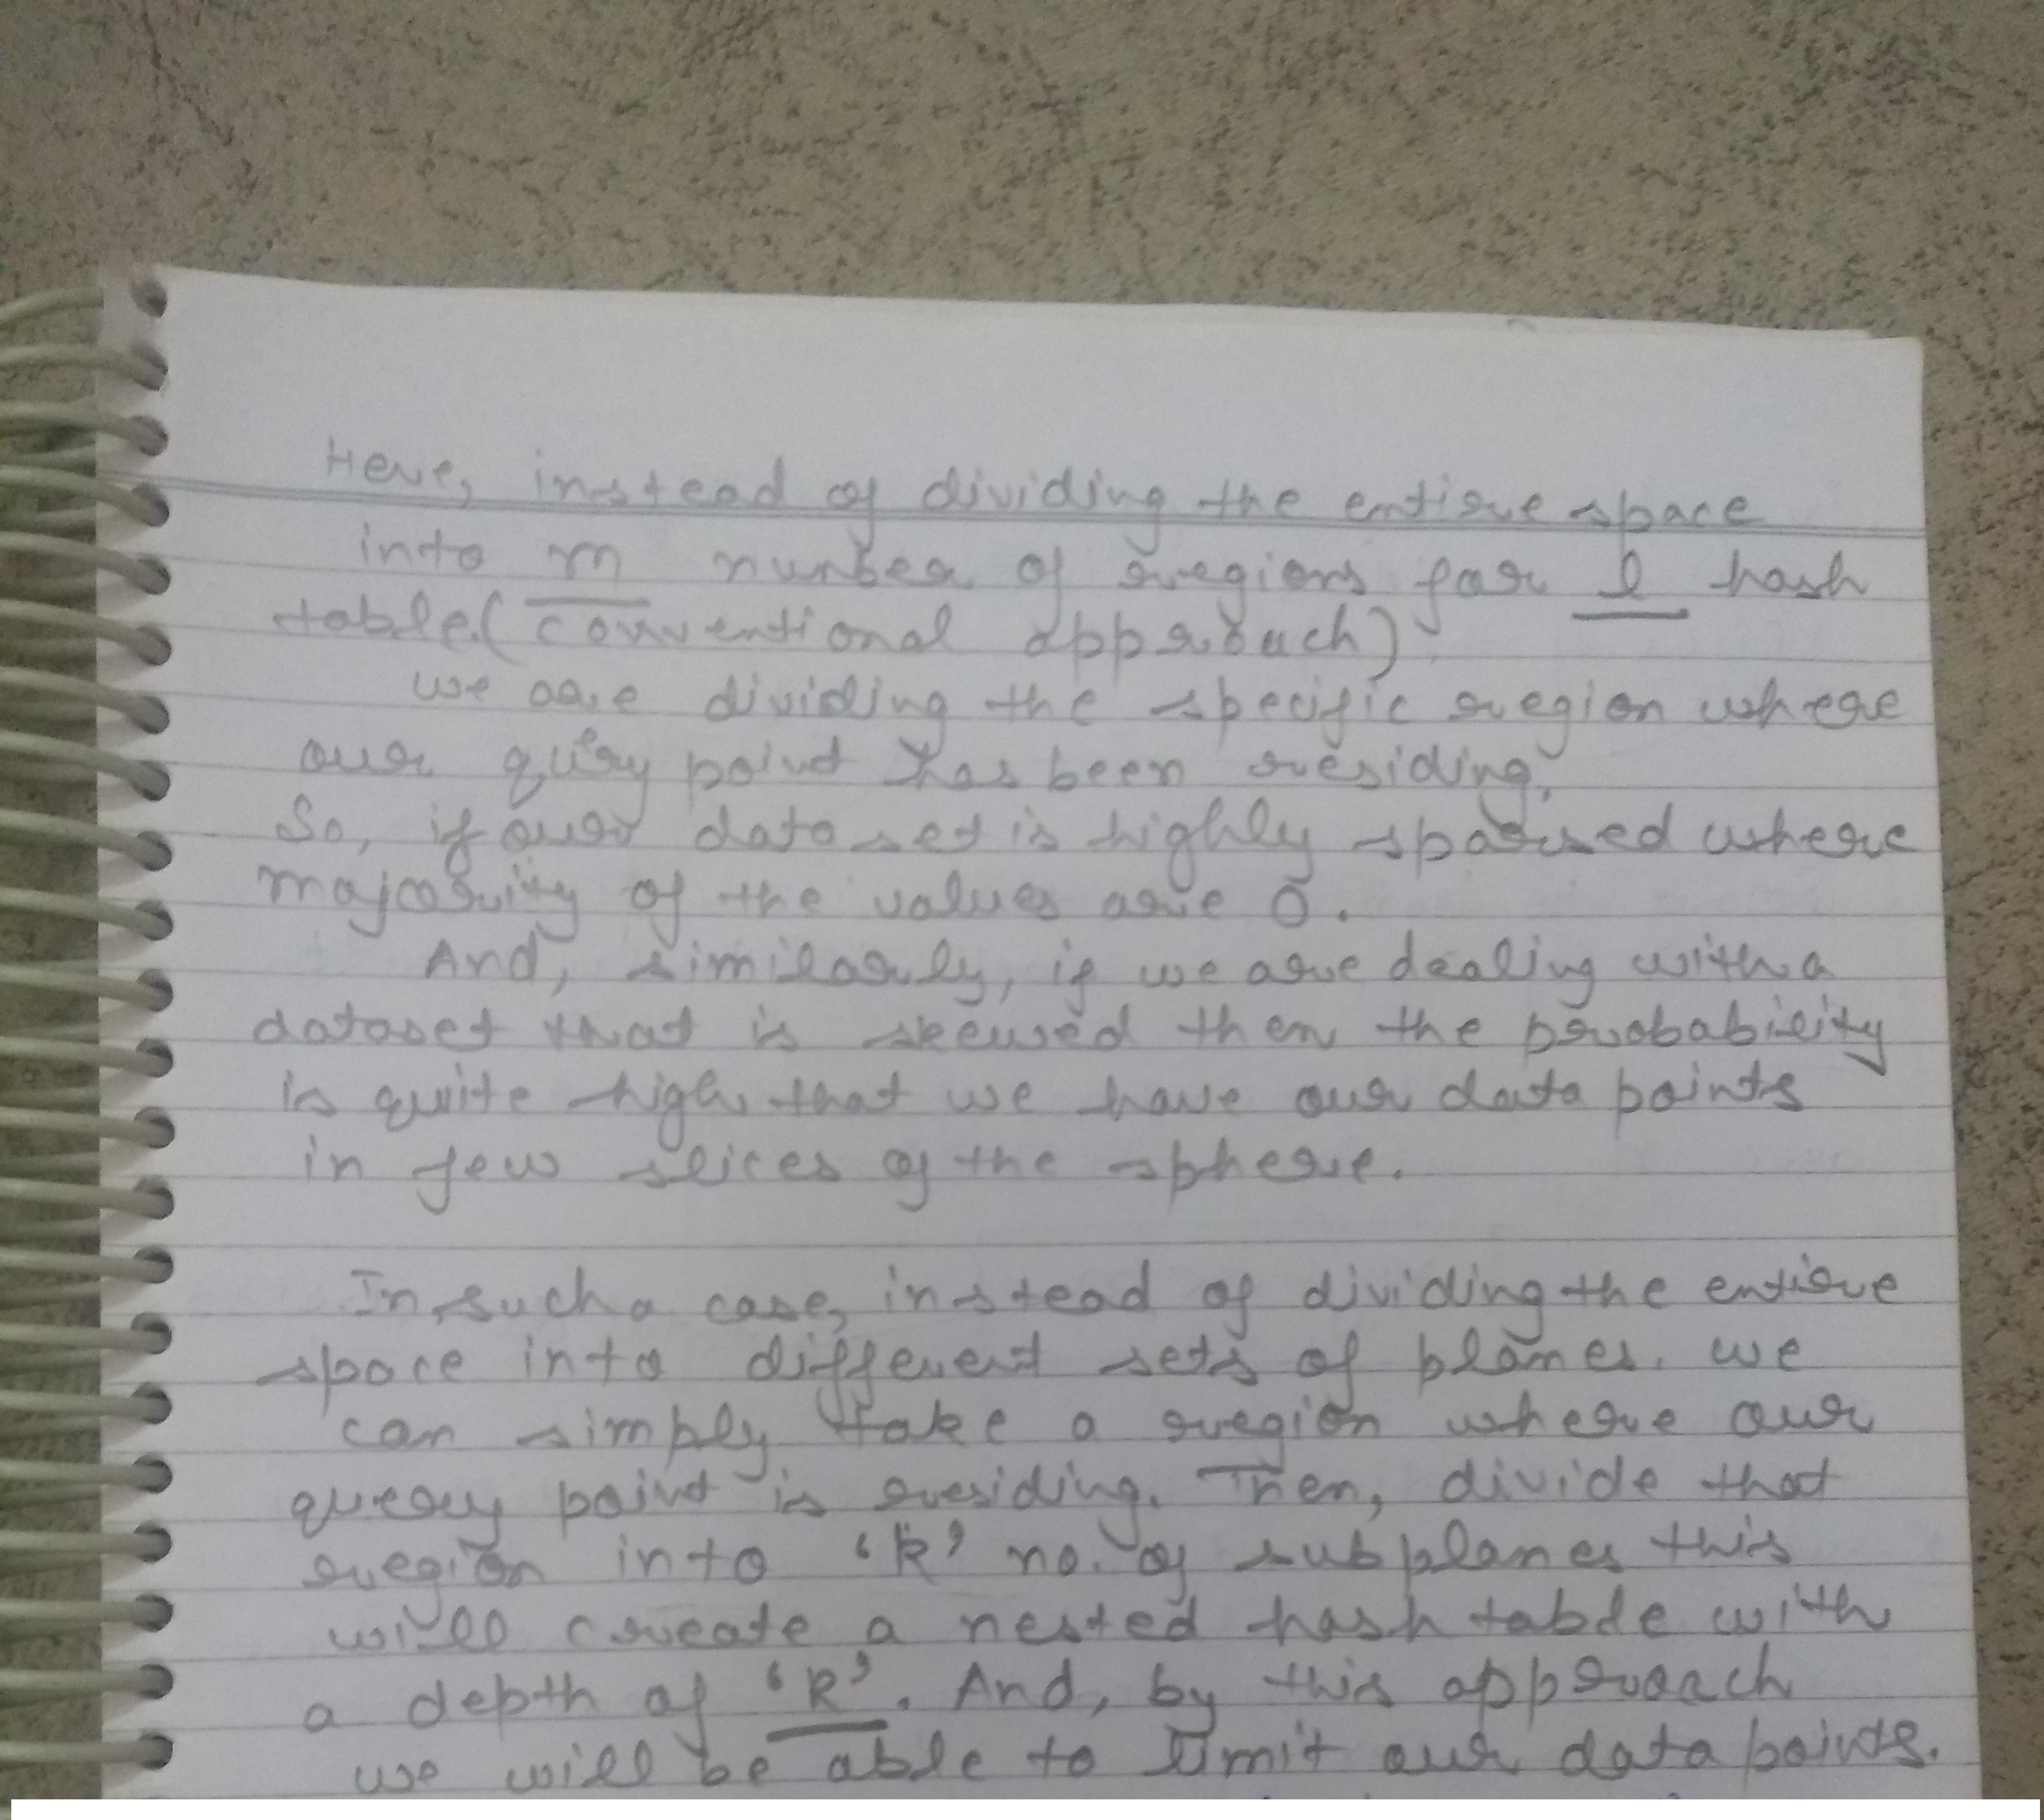 Here, instead of dividing the entire space
into m number of regions for l hash
table (conventional approach)
we are dividing the specific region where
our query point has been residing.
So, if our data set is highly sparsed where
majority of the values are 0.
And, similarly, if we are dealing with a
dataset that is skewed then the probability
is quite high that we have our data points
in few slices of the sphere.
In such a case, instead of dividing the entire
space into different sets of planes. we
can simply take a region where our
query point is residing. Then, divide that
region into 'k' no. of subplanes this
will create a nested hash table with
a depth of 'k'. And, by this approach
we will be able to limit our data points.